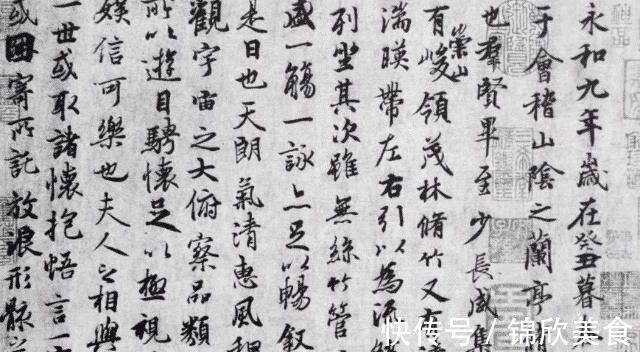 永和九年歲在癸丑暮
于會稽山陰之蘭亭
也羣賢畢至少長咸集
有崇山峻領茂林脩竹又有清
湍暎帶左右引以為流
列坐其次雖無絲竹管
盛一觴一詠亦足以暢叙
是日也天朗氣清惠風
觀宇宙之大俯察品類
所以遊目騁懷足以極視
娛信可樂也夫人之相與
一世或取諸懷抱悟言一
或因寄所託放浪形骸
快传号/锦欣美食